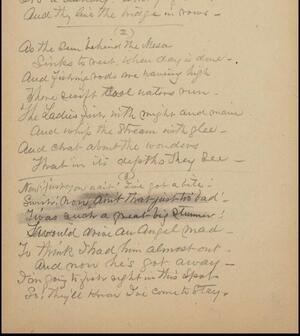 And they line the bridge in rows –
(2)
As the Sun behind the Mesa
Sinks to rest when day is done –
And fishing rods are waving high
Where swift cool waters run –
The Ladies fish, with might and main
And whip the stream with glee –
And chat about the wonders
That in its depths they see –
Now just you wait! I've got a bite!
Now Ain't that just too bad!
T'was such a great big
T'would drive an Angel mad –
To think I had him almost out –
And now he's got away –
I'm going to fish right in this Spot –
So they'll know I've come to stay.